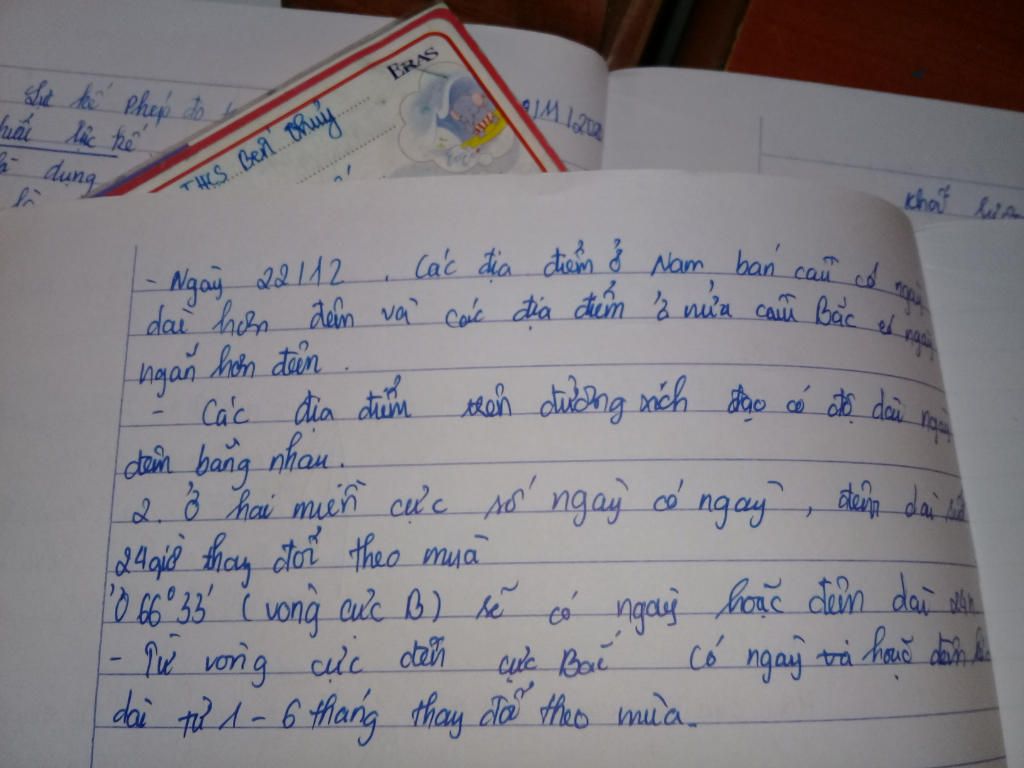 Lực kế Phép đo
lực kế
dụng
ERAS
THCS Bến Thủy
khối
- Ngày 22/12. Các địa điểm ở Nam bán cầu có ngày
dài hơn đêm và các địa điểm ở nửa cầu Bắc có ngày
ngắn hơn đêm.
- Các địa điểm trên đường xích đạo có độ dài ngày
đêm bằng nhau.
2. Ở hai miền cực số ngày có ngày, đêm dài
24 giờ thay đổi theo mùa
Ở 66°33' (vòng cực B) sẽ có ngày hoặc đêm dài 24h
- Từ vòng cực đến cực Bắc có ngày và hoặc đêm
dài từ 1 - 6 tháng thay đổi theo mùa.